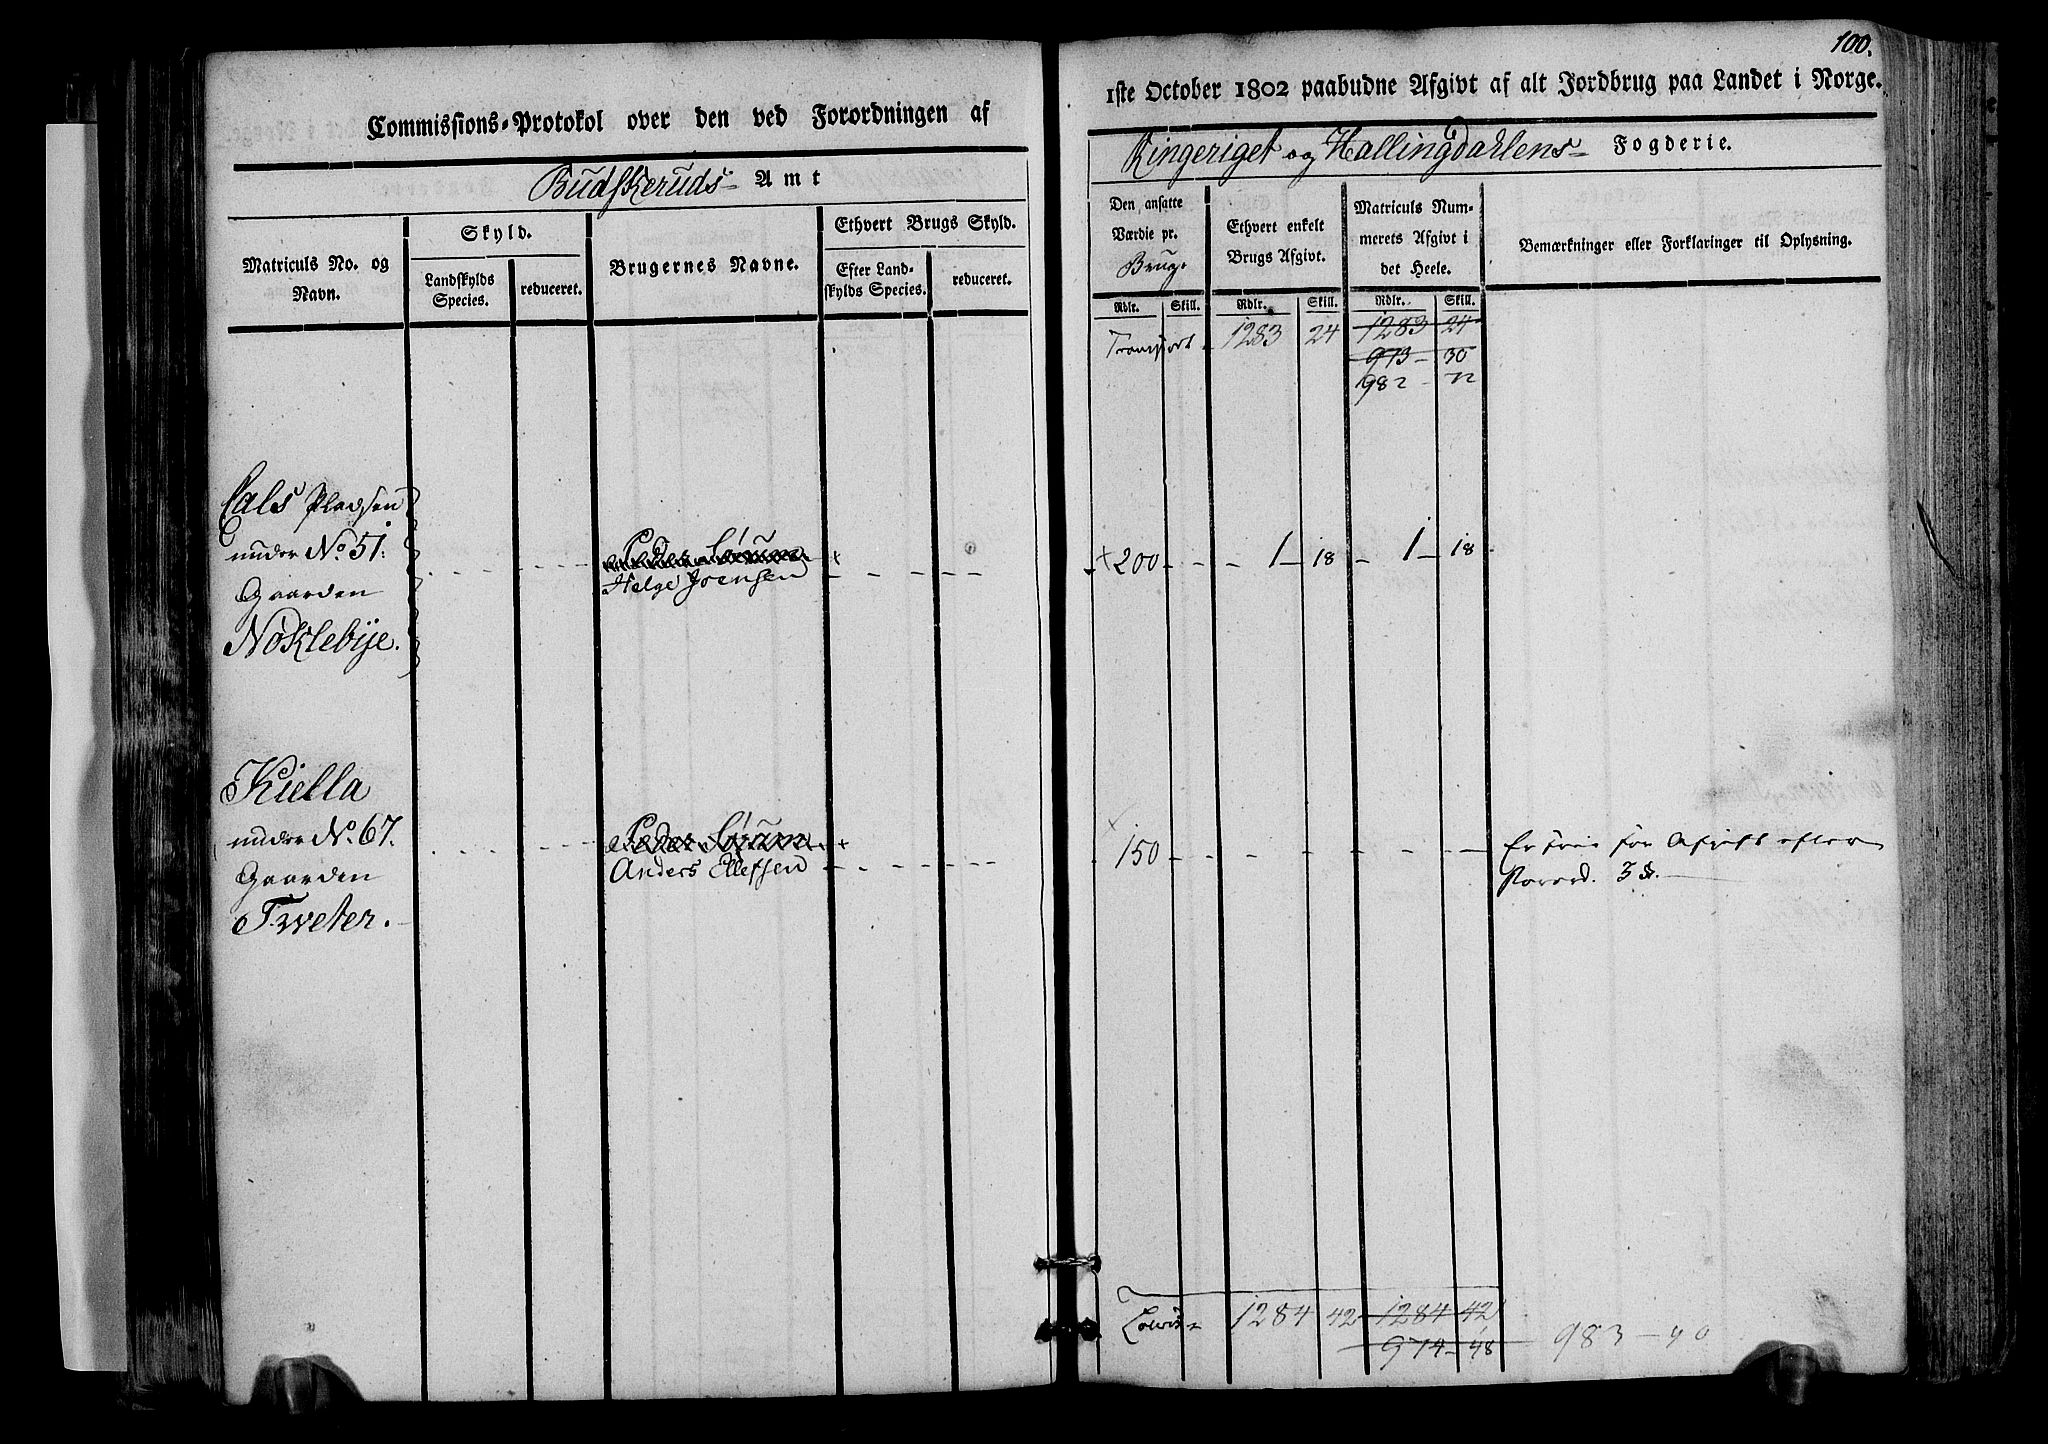 Commissions-Protokol over den ved Forordningen af
Budskeruds- Amt
Matriculs No. og Navn.
Skyld.
Landskylds Species.
reduceret.
Brugernes Navne.
Ethvert Brugs Skyld.
Efter Landskylds Species.
reduceret.
Pladsen
under No 51.
Gaarden
Nøklebye.
Peder Sørum
Helge Joensen
Kiella
under No. 67.
Gaarden
Tweter.
Peder Sørum
Anders Ellefsen
100.
1ste October 1802 paabudne Afgivt af alt Jordbrug paa Landet i Norge.
Ringeriget og Hallingdahlens- Fogderie.
Den ansatte Værdie pr. Brug.
Ethvert enkelt Brugs Afgivt.
Matriculs Nummerets Afgivt i det Heele.
Bemærkninger eller Forklaringer til Oplysning.
Rdlr. Skill. Rdlr. Skill. Rdlr. Skill.
Transport 1283 24 1283 24
973 - 30
982 - 72
200 - - - 1 - 18 - 1 - 18
150 - - - - - - Er frie for Afgift efter
Forord. 3 §.
1284 42 1284 42
974 - 48 983 - 90